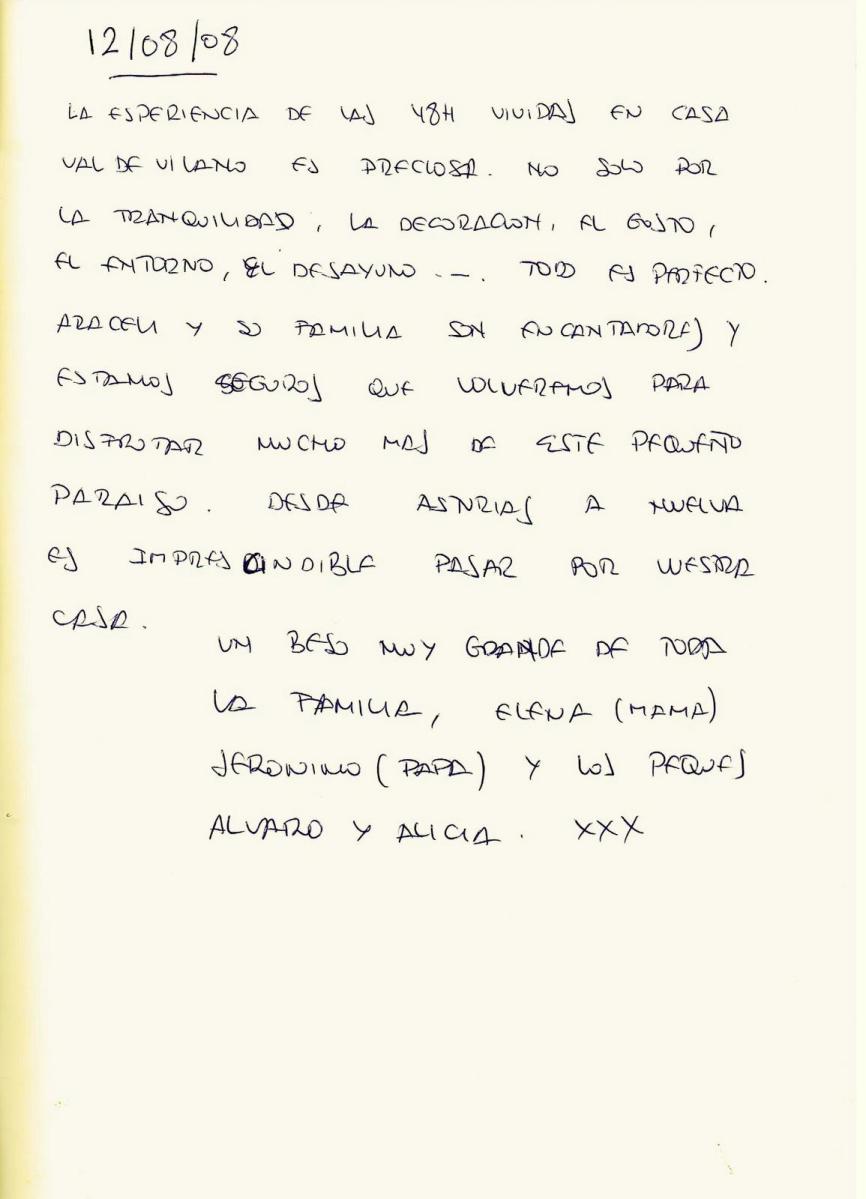 12/08/08
LA ESPERIENCIA DE LAS 48H VIVIDAS EN CASA
VAL DE VILANO ES PRECIOSA. NO SOLO POR
LA TRANQUILIDAD, LA DECORACION, EL GUSTO,
EL ENTORNO, EL DESAYUNO .-. TODO ES PERFECTO.
ARACELI Y SU FAMILIA SON ENCANTADORES Y
ESTAMOS SEGUROS QUE VOLVEREMOS PARA
DISFRUTAR MUCHO MAS DE ESTE PEQUEÑO
PARAISO. DESDE ASTURIAS A HUELVA
ES IMPRESCINDIBLE PASAR POR VUESTRA
CASA.
UN BESO MUY GRANDE DE TODA
LA FAMILIA, ELENA (MAMA)
JERONIMO (PAPA) Y LOS PEQUES
ALVARO Y ALICIA. XXX